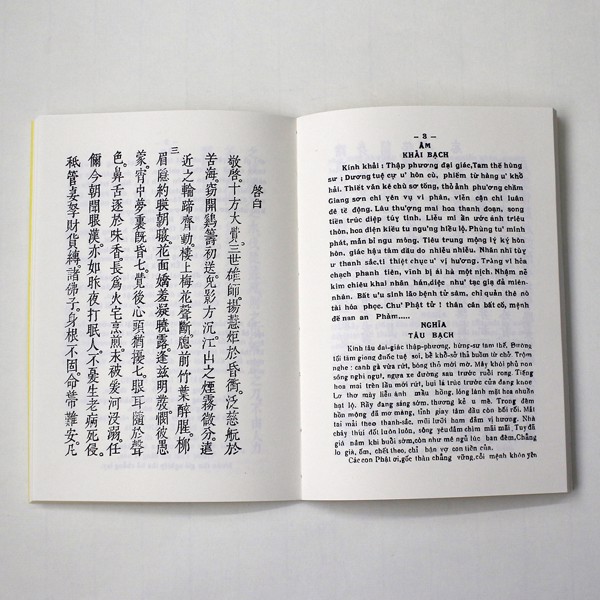 啓白
敬啓。十方大覺。三世雄師。揚慧炬於昏衢。泛慈航於
苦海。竊聞鷄籌初送。兔影方沉。江山之煙霧微分。遠
近之輪蹄齊動。樓上梅花聲斷。窻前竹葉醉醒。柳
眉暗約朝曦。花面嬌羞凝曉露。逢兹明發。憫彼愚
蒙。宵中夢裏旣昏七。覺後心頭猶擾七。眼耳隨於聲
色。鼻舌逐於味香。長爲火宅烹煎。未被爰河沒溺。任
儞今朝開眼漢。亦如昨夜打眠人。不憂生老病死侵。
秪管妻孥財貨縛。諸佛子。身根不固。命蒂難安。凡
三
— 3 —
ÂM
KHẢI BẠCH
Kinh khải : Thập phương đại giác, Tam thế hùng
sư ; Dương tuệ cự u' hôn cù, phiếm từ hàng u' khổ
hải. Thiết văn kê chù sơ tống, thỏ ảnh phương chầm
Giang sơn chi yên vụ vi phân, viễn cận chi luân
đề tề động. Lâu thượng mai hoa thanh đoạn, song
tiền trúc diệp túy tinh. Liễu mi ần ước ánh triêu
thôn, hoa diện kiều tu ngưng hiểu lộ. Phùng tư minh
phát, mẫn bỉ ngu mông. Tiêu trung mộng lý ký hôn
hôn, giác hậu tâm đầu do nhiễu nhiễu. Nhãn nhĩ tùy
ư thanh sắc, tỉ thiệt chục u' vị hương. Tràng vi hỏa
chạch phanh tiên, vĩnh bị ái hà một nịch. Nhậm nễ
kim chiêu khai nhãn hán, diệc như tạc giạ đả miên-
nhân. Bất u'u sinh lão bệnh tử sâm, chỉ quản thê nô
tài hóa phọc. Chư Phật tử ! thân căn bất cố, mệnh
đế nan an Phàm.....
NGHĨA
TÂU BẠCH
Kính tâu đại-giác thập-phương, hùng-sư tam thế, Đường
tối tăm giong đuốc tuệ soi, bể khổ-sở thả buồm từ chở. Trộm
nghe : canh gà vừa rứt, bóng thỏ mới mờ. Mây khói phủ non
sông nghi ngút, ngựa xe đường sau trước ruổi rong. Tiếng
hoa mai trên lầu mới rứt, bụi lá trúc trước cửa đang hoen
Lơ thơ mày liễu ánh mầu hồng, lóng lánh mặt hoa nhuốm
bạt lộ. Rầy đang sáng sớm, thương kẻ u mê. Trong đêm
hồn mộng đã mơ màng, tỉnh giậy tâm đầu còn bối rối. Mắt
tai mải theo thanh-sắc, mũi lưỡi ham đắm vị hương. Nhà
cháy thui đốt luôn luôn, sông yêu đắm chìm mãi mãi. Tuy đã
giả nắm khi buổi sớm, còn như mê ngủ lúc ban đêm, Chẳng
lo già, ốm, chết theo, chỉ bận vợ con tiền của.
Các con Phật ơi, gốc thân chẳng vững, cỗi mệnh khôn yên